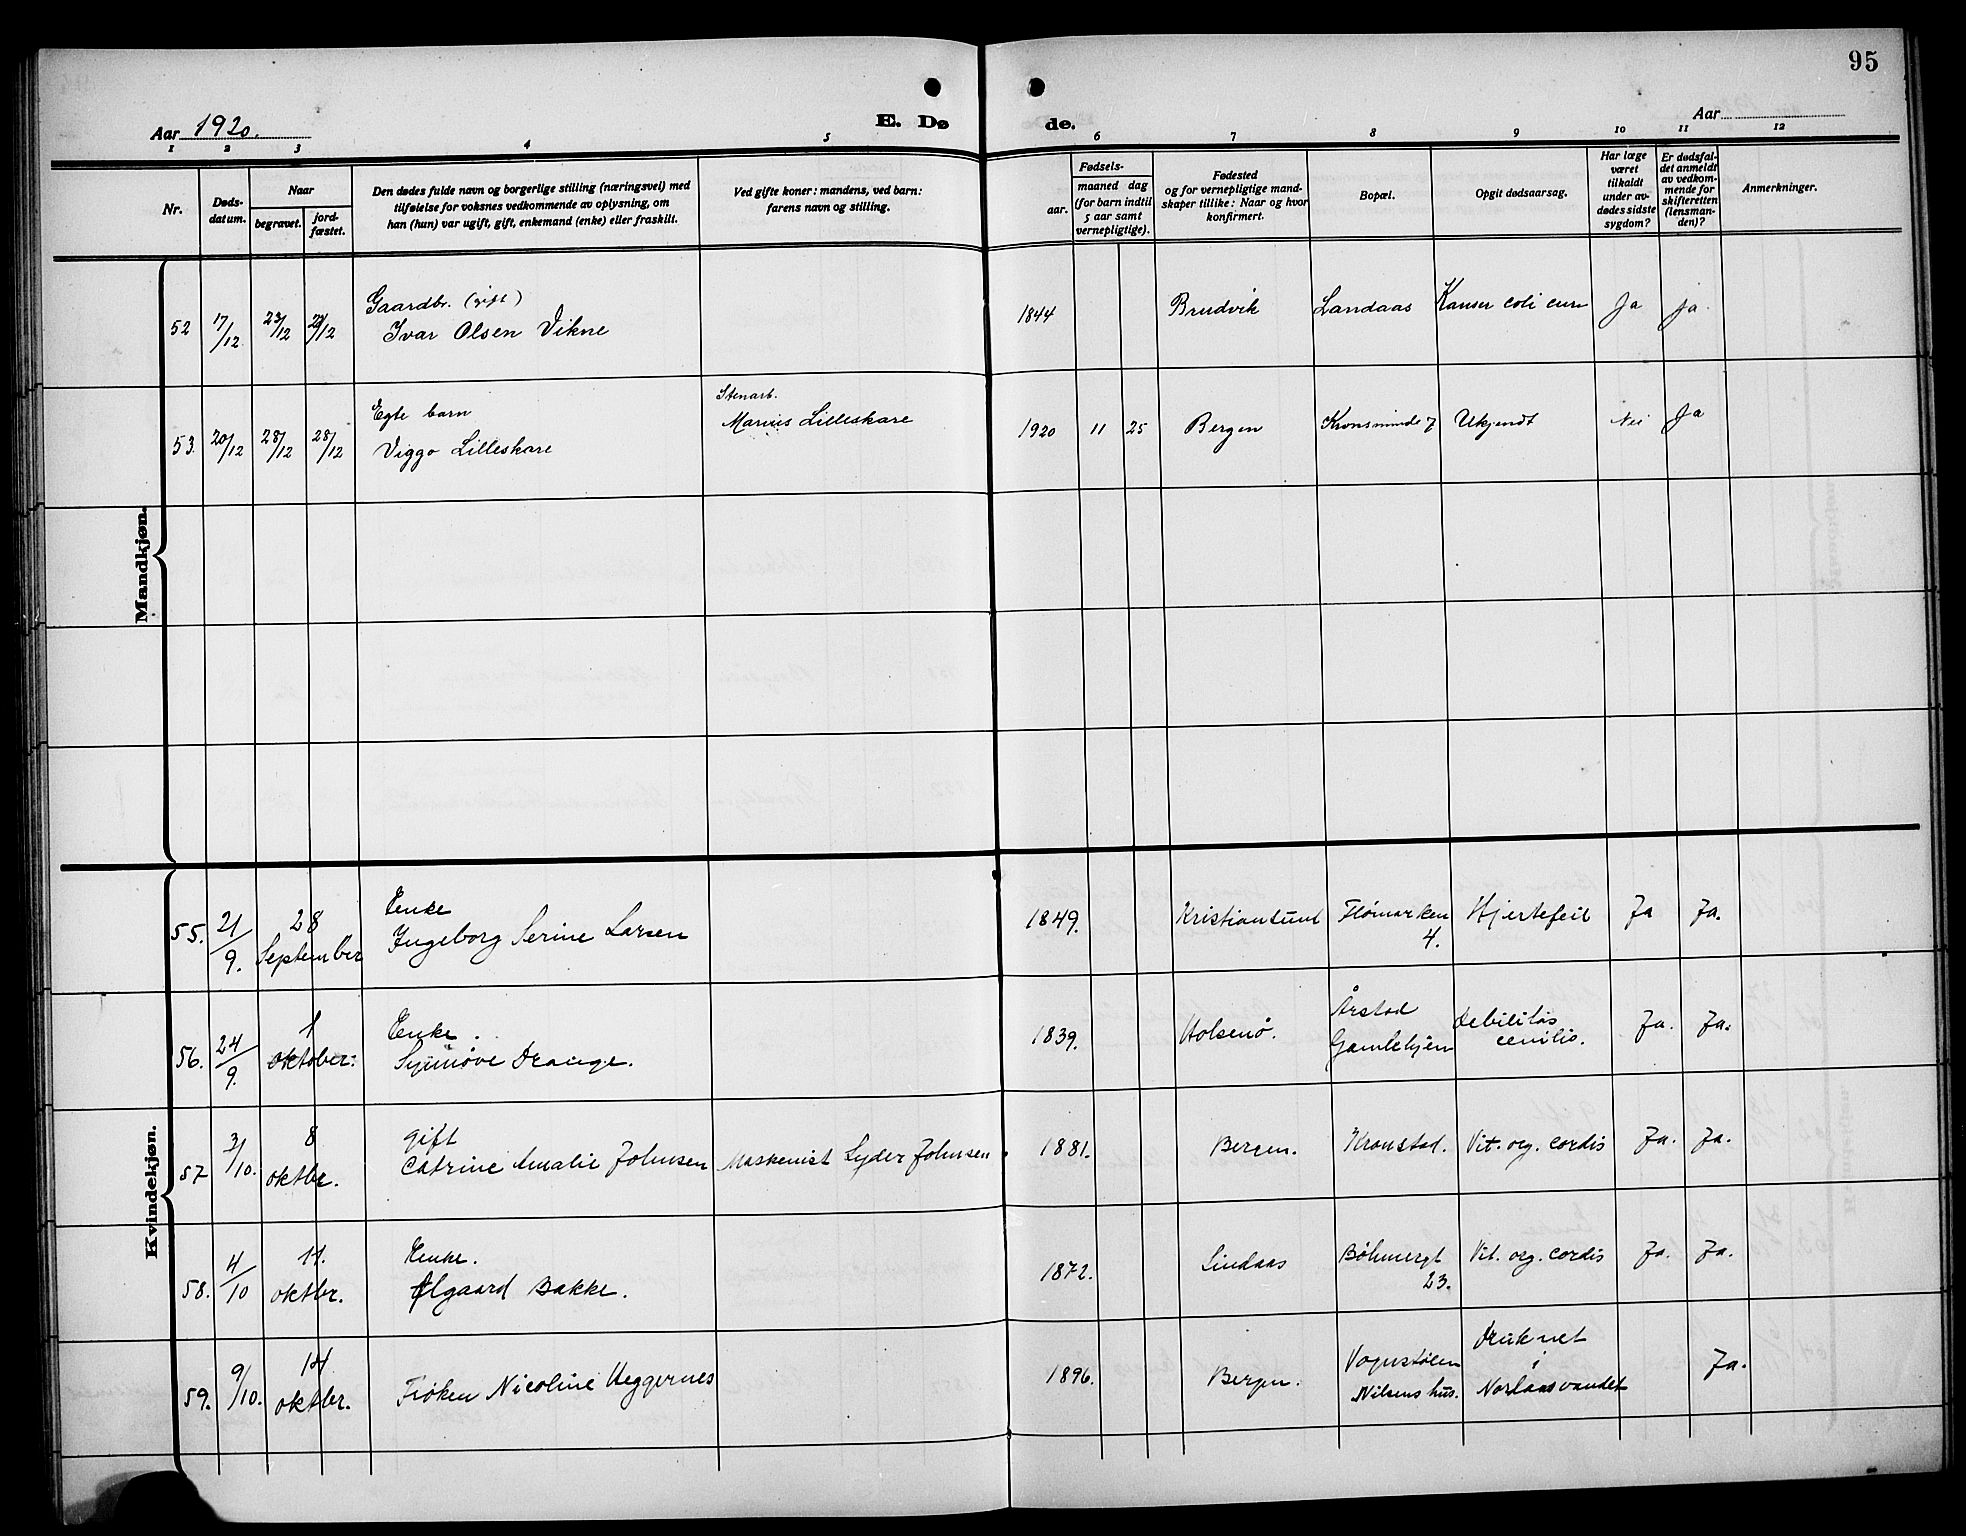 95
Aar 1920.
E. Dø
de.
Aar
1 2 3 4 5 6 7 8 9 10 11 12
Nr.
Døds-
datum.
Naar
begravet.
jord-
fæstet.
Den dødes fulde navn og borgerlige stilling (næringsvei) med
tilføielse for voksnes vedkommende av oplysning, om
han (hun) var ugift, gift, enkemand (enke) eller fraskilt.
Ved gifte koner: mandens, ved barn:
farens navn og stilling.
Fødsels-
aar.
maaned dag
(for barn indtil
5 aar samt
vernepligtige).
Fødested
og for vernepligtige mand-
skaper tillike: Naar og hvor
konfirmert.
Bopæl.
Opgit dødsaarsag.
Har læge
været
tilkaldt
under av-
dødes sidste
sygdom?
Er dødsfal-
det anmeldt
av vedkom-
mende for
skifteretten
(lensman-
den)?
Anmerkninger.
Mandkjøn.
Gaardbr. (gift)
52 17/12 23/12 /12 Ivar Olsen Vikne 1844 Brudvik Landaas Kanser coli Ja ja
Egte barn Stenarb.
53. 20/12 28/12 28/12 Viggo Lilleskare Marius Lilleskare 1920 11 25 Bergen Kronsminde 7 Ukjendt Nei Ja
Kvindekjøn.
Enke
55. 21/9. 28 September Ingeborg Serine Larsen 1849. Kristiansund Flømarken 4. Hjertefeil Ja Ja.
Enke.
56. 24/9. 1 oktober. Synnøve Drange. 1839. Holsenø. Årstad Gamlehjem debilitas cenilis. Ja. Ja.
gift
57 3/10. 8 oktbr. Catrine Amalie Johnsen Maskenist Lyder Johnsen 1881. Bergen. Kronstad. Vit. org. cordis Ja. Ja.
Enke.
58. 4/10 11. oktbr. Ølgaard Bakke. 1872. Lindaas Bøhmergt 23. Vit. org. cordis Ja. Ja.
59. 9/10. 14 oktbr. Frøken Nicoline Heggernes 1896. Bergen. Vognstølen Nilsens hus. Druknet i Norlaasvandet Ja.